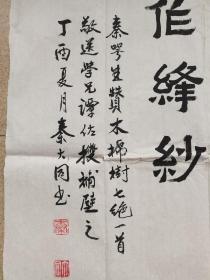 紗
作絳
秦咢生贊木棉樹七絕一首
敬送學兄譚佐機補壁之
丁酉夏月秦大同書